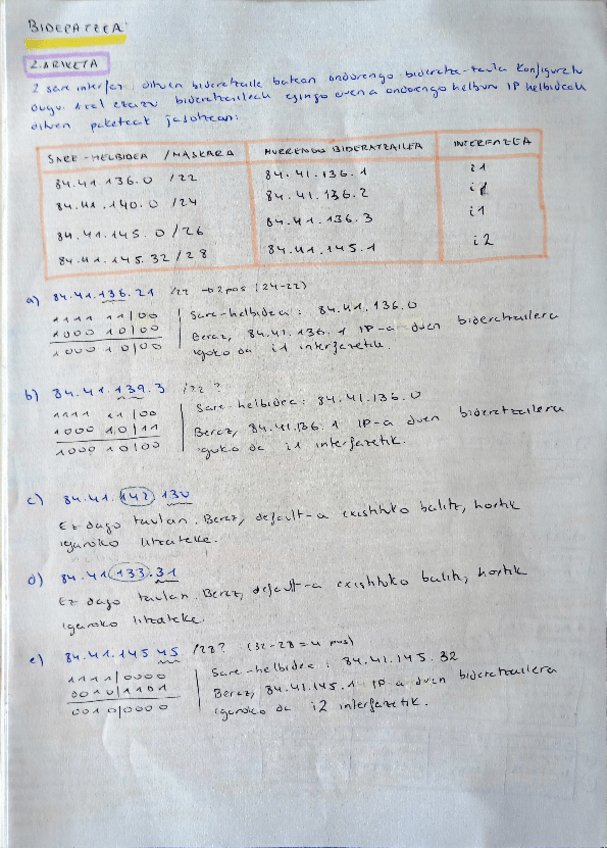 BIDERATZEA:
2. ARIKETA
2 sare interfaz dituen bideratzaile batean ondorengo bideratze-taula konfiguratu
dugu. Azal ezazu bideratzaileak egingo duena ondorengo helburu IP helbideak
dituen paketeak jasotzean:
SARE-HELBIDEA /MASKARA HURRENGO BIDERATZAILEA INTERFAZEA
84.41.136.0 /22 84.41.136.1 i1
84.41.140.0 /24 84.41.136.2
84.41.145.0 /26 84.41.136.3 i1
84.41.145.32 /28 84.41.145.1 i2
a) 84.41.136.21 /22 → 2 pos (24-22)
1111 11|00 Sare-helbidea: 84.41.136.0
1000 10|00 Beraz, 84.41.136.1 IP-a duen bideratzailera
1000 10|00 igoko da i1 interfazetik.
b) 84.41.139.3 /22?
1111 11|00 Sare-helbidea: 84.41.136.0
1000 10|11 Beraz, 84.41.136.1 IP-a duen bideratzailera
1000 10|00 igoko da i1 interfazetik.
c) 84.41.142.130
Ez dago taulan. Beraz, default-a existituko balitz, hortik
igaroko litzateke.
d) 84.41.133.31
Ez dago taulan. Beraz, default-a existituko balitz, hortik
igaroko litzateke.
e) 84.41.145.45 /28? (32-28=4 pos)
1111|0000 Sare-helbidea: 84.41.145.32
0010|1101 Beraz, 84.41.145.1 IP-a duen bideratzailera
0010|0000 igaroko da i2 interfazetik.